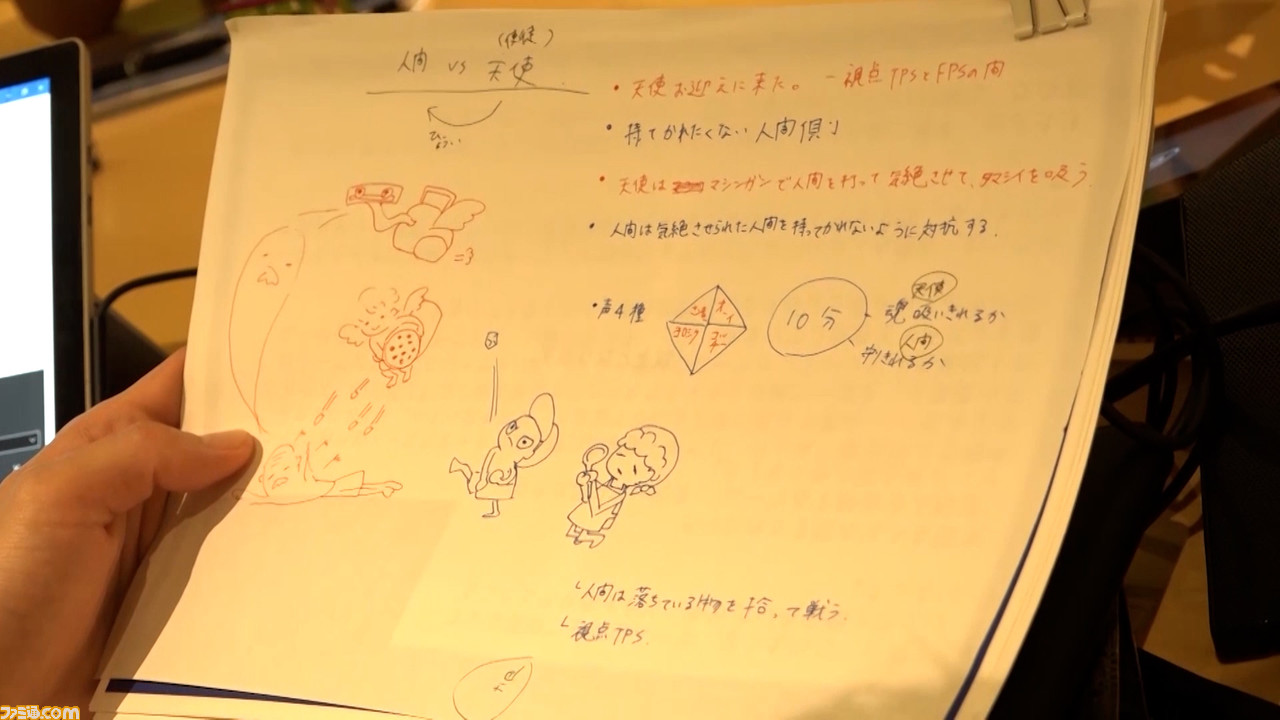 (使徒)
人間 vs 天使
ひょうい
・天使お迎えに来た。 ― 視点TPSとFPSの間
・持てかれたくない人間側
・天使はマシンガンで人間を打って気絶させて、タマシイを吸う
・人間は気絶させられた人間を持ってかれないように対抗する.
=3
・声4種
ヨロシク
10分
天使
魂吸いきれるか
人間
守りきれるか
└人間は落ちている物を拾って戦う.
└視点TPS.
ファミ通.com